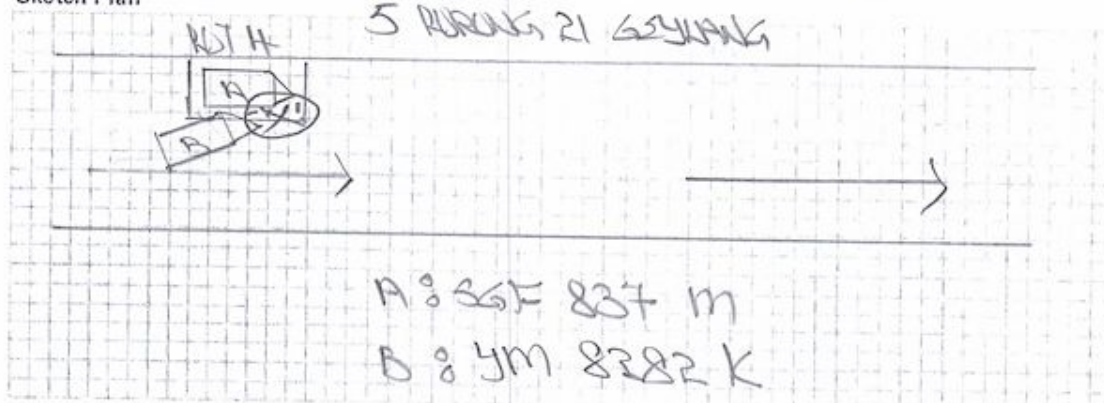 Sketch Plan
5 RURONG 21 GEYLANG
LOT 4
A
B
A : SGF 837 M
B : YM 8282 K